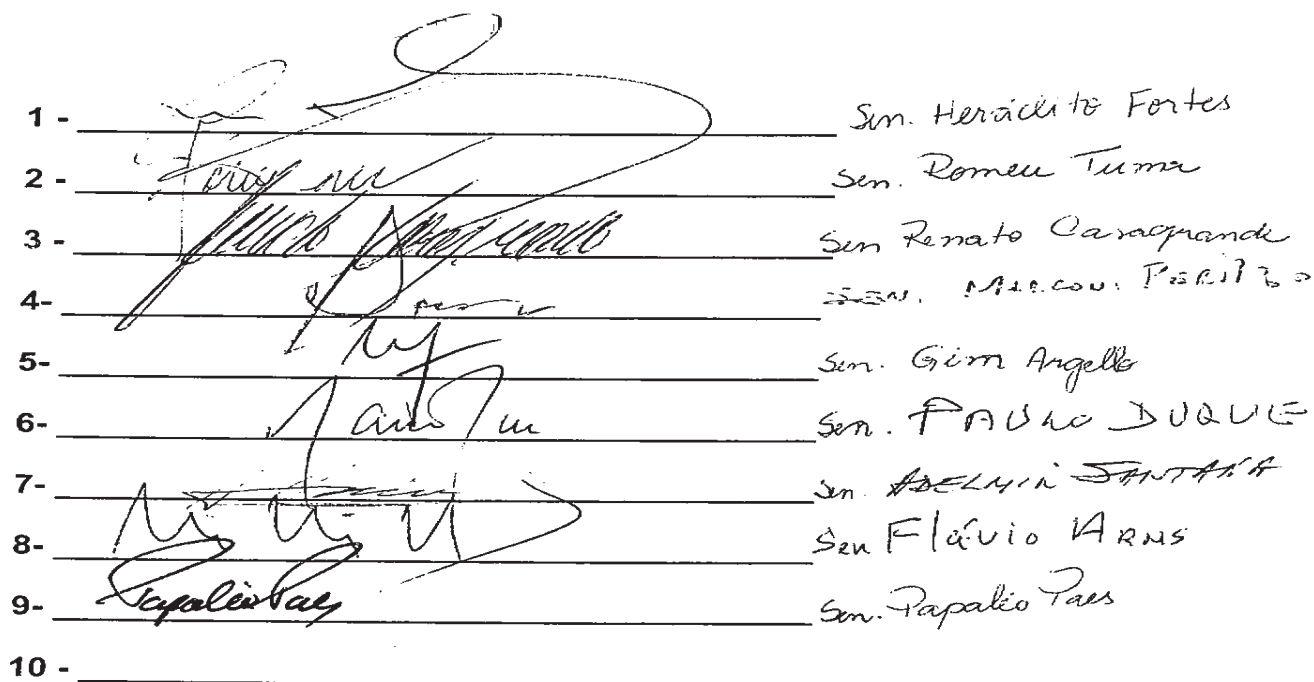 1 - Sen. Heráclito Fortes
2 - Sen. Romeu Tuma
3 - Sen Renato Casagrande
4- SEN. MARCONI PERILLO
5- Sen. Gim Argello
6- Sen. PAULO DUQUE
7- Sen. ADELMIR SANTANA
8- Sen Flávio ARNS
9- Papaléo Paes Sen. Papaléo Paes
10 -